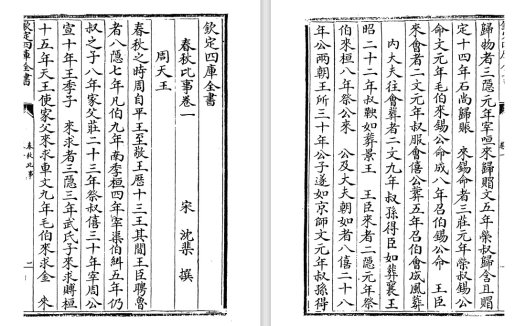 欽定四庫全書
春秋比事卷一
宋 沈棐 撰
周天王
春秋之時周自平王至敬王歷十三王其間王臣聘魯
者八隱七年凡伯九年南季桓四年宰渠伯糾五年仍
叔之子八年家父莊二十三年祭叔僖三十年宰周公
宣十年王季子 來求者三隱三年武氏子來求賻桓
十五年天王使家父來求車文九年毛伯來求金 來
欽定四庫全書
春秋比事
歸物者三隱元年宰咺來歸賵文五年榮叔歸含且賵
定十四年石尚歸脤 來錫命者三莊元年榮叔錫公
命文元年毛伯來錫公命成八年召伯錫公命 王臣
來會者二文元年叔服會僖公葬五年召伯會成風葬
内大夫往會葬者二文九年叔孫得臣如葬襄王
昭二十二年叔鞅如葬景王 王臣來者二隱元年祭
伯來桓八年祭公來 公及大夫朝如者八僖二十八
年公兩朝王所三十年公子遂如京師文元年叔孫得